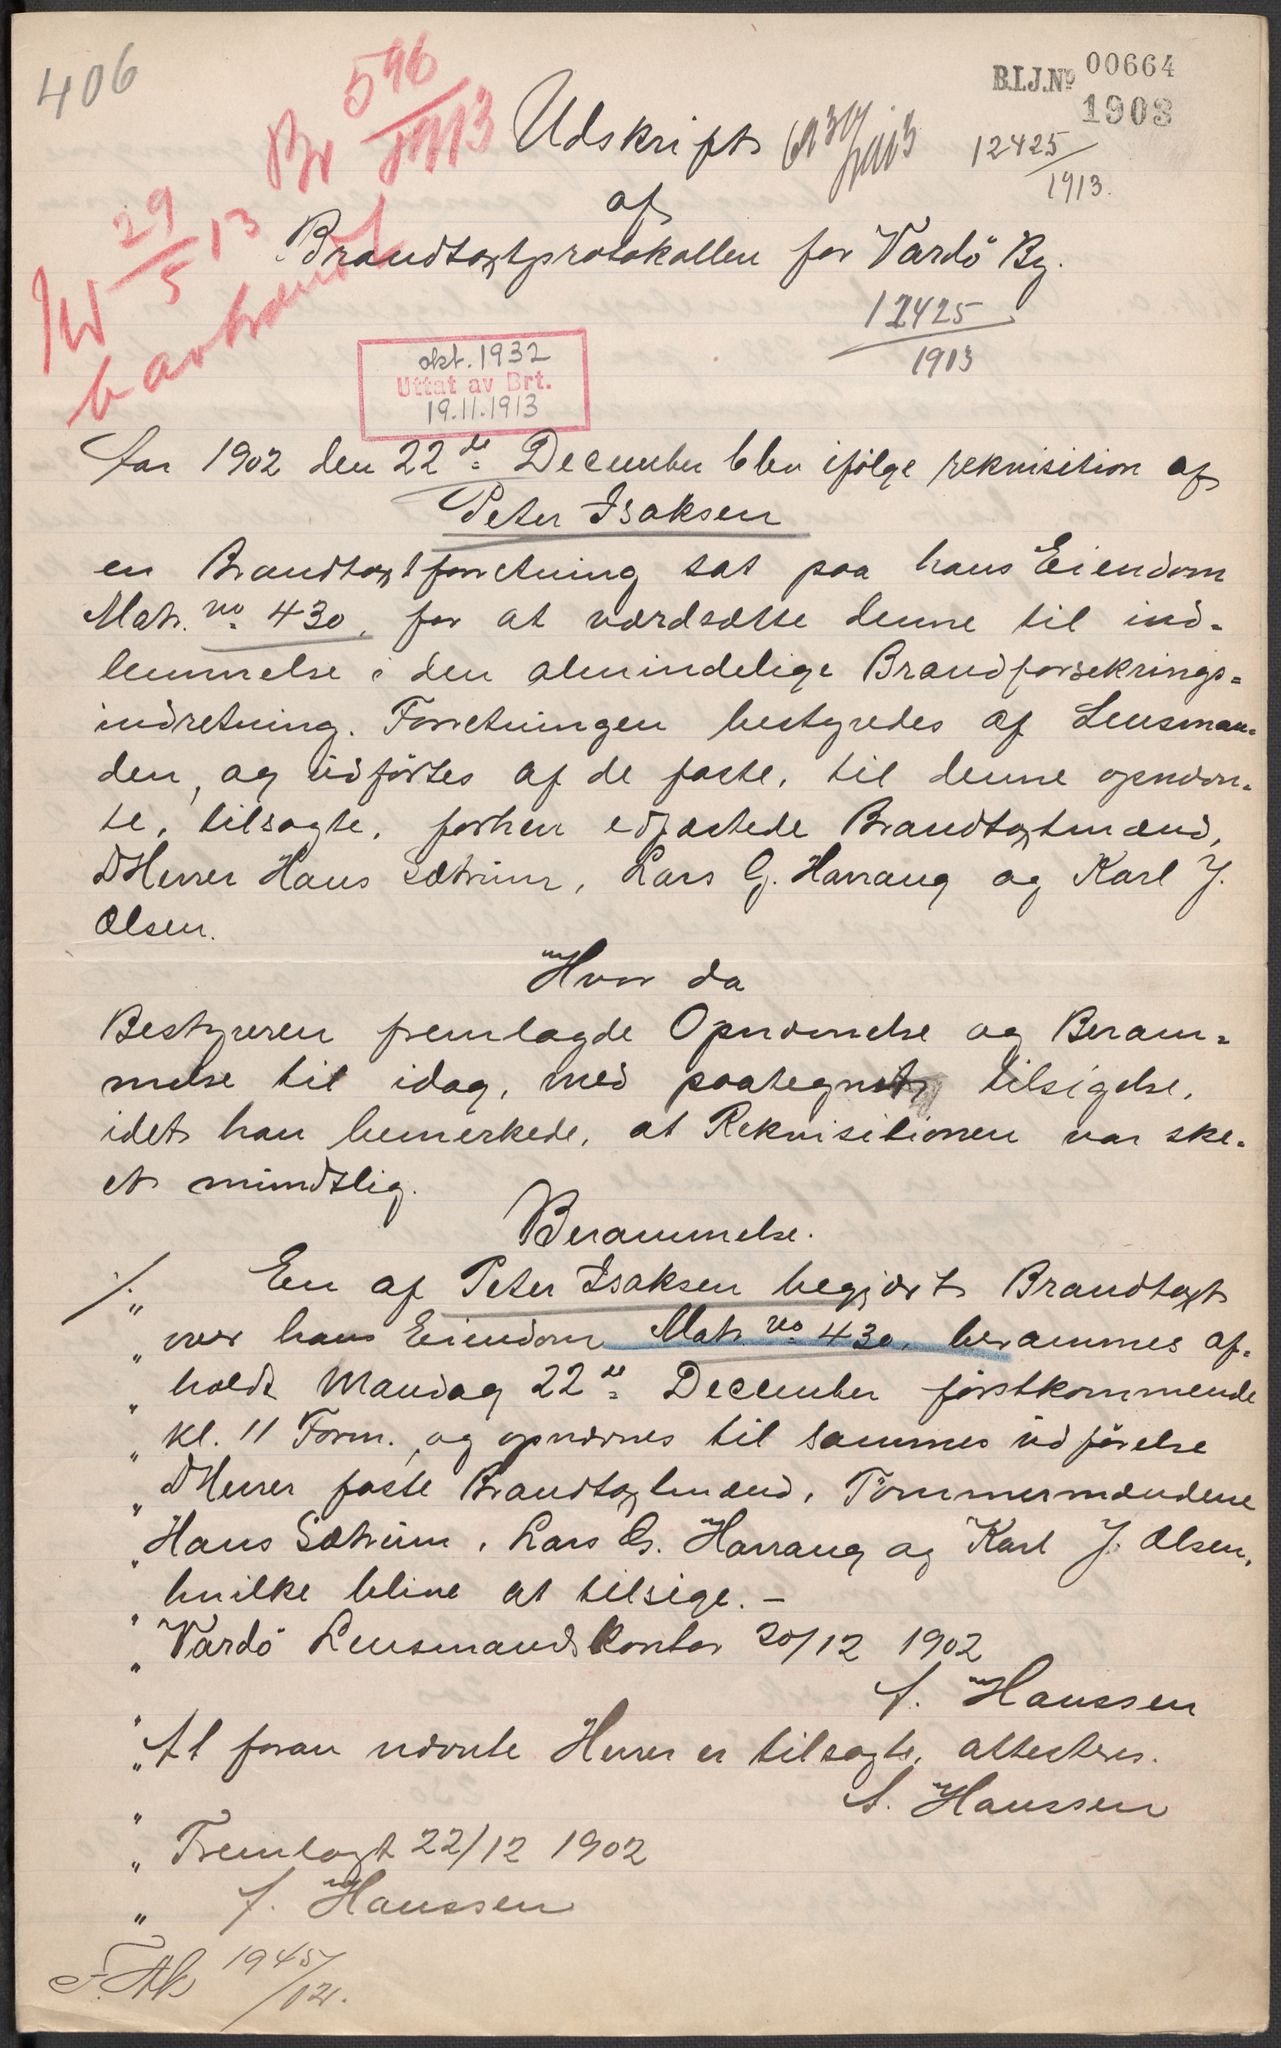 406
Br 596/1913
B.I.J.No 00664
1903
Udskrift
12425/1913.
af
29/5 13
Brandtaxtprotokollen for Vardö By.
12425
1913
okt. 1932
Uttat av Brt.
19.11.1913
Aar 1902 den 22de December blev ifölge rekvisition af
Peter Isaksen
en Brandtaxtforretning sat paa hans Eiendom
Matr. no 430, for at værdsætte denne til ind-
lemmelse i den almindelige Brandforsekrings-
indretning. Forretningen bestyredes af Lensman-
den, og udförtes af de faste, til denne opnævn-
te, tilsagte, forhen edfæstede Brandtaxtmænd,
DHerrer Hans Sætrum, Lars G. Harrang og Karl J.
Olsen.
Hvor da
Bestyreren fremlagde Opnævnelse og Beram-
melse til idag, med paategnet tilsigelse,
idet han bemerkede, at Rekvisitionen var ske-
et mundtlig.
Berammelse.
./. En af Peter Isaksen begjært Brandtaxt
" over hans Eiendom Matr. no 430, berammes af-
" holdt Mandag 22de December förstkommende
" kl. 11 Form., og opnævnes til sammes udförelse
" DHerrer faste Brandtaxtmænd, Tömmermændene
" Hans Sætrum, Lars G. Harrang og Karl J. Olsen,
" hvilke blive at tilsige. –
" Vardö Lensmandskontor 20/12 1902
" A. Hanssen
" At foran nævnte Herrer er tilsagte, attesteres.
" A. Hanssen
" Fremlagt 22/12 1902
" A. Hanssen
1945/